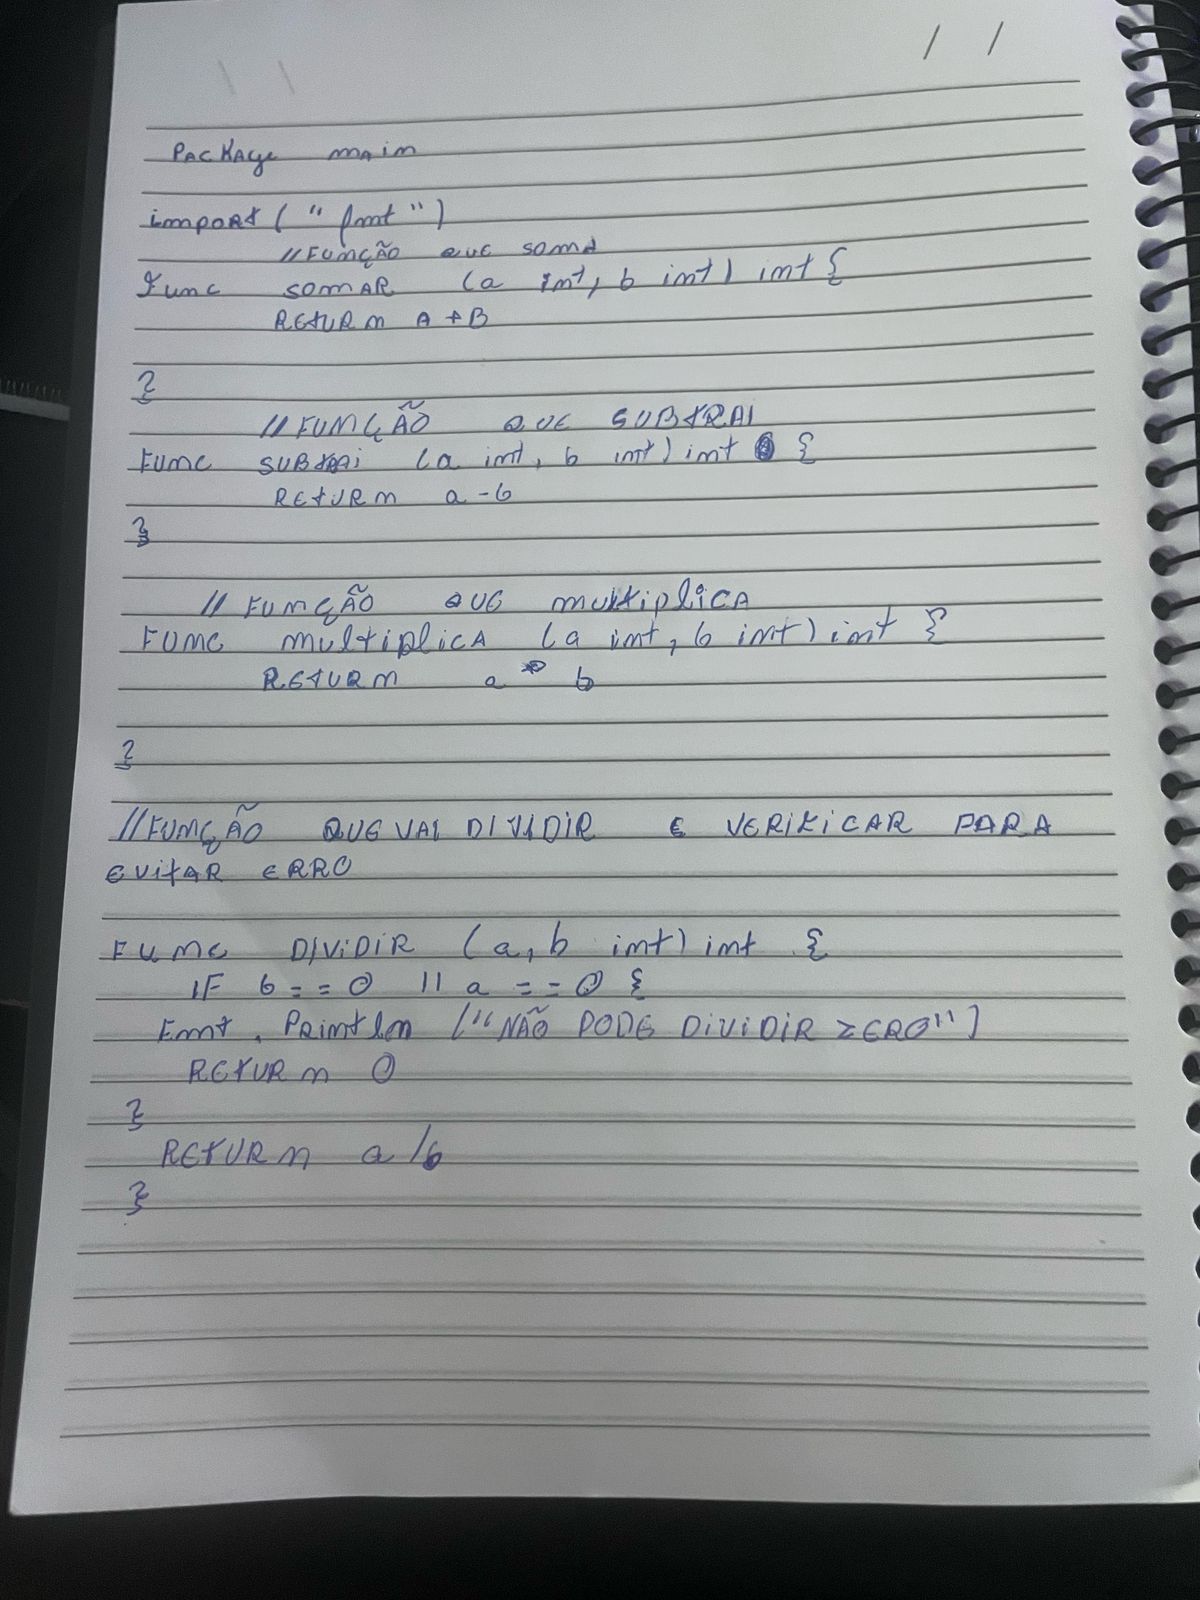 / /
PACKAge main
import ( " fmt " )
//FUNÇÃO QUE SOMA
Func SOMAR (a int, b int) int {
RETURn A + B
}
//FUNÇÃO QUE SUBTRAI
Func SUBTRAi (a int, b int) int {
RETURn a - b
}
// FUNÇÃO QUE multiplica
FUNC multiplicA (a int, b int) int {
RETURn a * b
}
//FUNÇÃO QUE VAI DIVIDIR E VERIFICAR PARA
EVITAR ERRO
FUNC DIViDiR (a, b int) int {
IF b == 0 || a == 0 {
Fmt . Println ("NÃO PODE DiViDiR ZERO")
RETURn 0
}
RETURn a / b
}